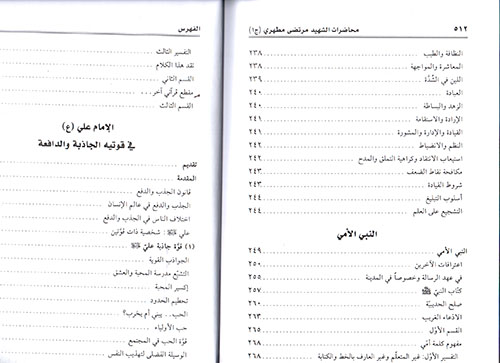 ٥١٢ محاضرات الشهيد مرتضى مطهري (ج١)
النظافة والطيب ٢٣٨
المعاشرة والمواجهة ٢٣٨
اللين في الشدّة ٢٣٩
العبادة ٢٤٠
الزهد والبساطة ٢٤٠
الإرادة والاستقامة ٢٤١
القيادة والإدارة والمشورة ٢٤١
النظم والانضباط ٢٤٢
استيعاب الانتقاد وكراهية التملق والمدح ٢٤٢
مكافحة نقاط الضعف ٢٤٣
شروط القيادة ٢٤٣
أسلوب التبليغ ٢٤٤
التشجيع على العلم ٢٤٤
النبي الأمي
النبي الأمي ٢٤٩
اعترافات الآخرين ٢٥٠
في عهد الرسالة وخصوصاً في المدينة ٢٥٥
كتّاب النبيّ ٢٥٧
صلح الحديبيّة ٢٦٠
الادعاء الغريب ٢٦٣
القسم الأوّل ٢٦٥
مفهوم كلمة أمّي ٢٦٨
التفسير الأوّل: غير المتعلّم وغير العارف بالخط والكتابة ٢٦٨
الفهرس
التفسير الثالث
نقد هذا الكلام
القسم الثاني
مقطع قرآني آخر...
القسم الثالث
الإمام علي (ع)
في قوتيه الجاذبة والدافعة
تقديم
المقدمة
قانون الجذب والدفع
الجذب والدفع في عالم الإنسان
اختلاف الناس في الجذب والدفع
علي : شخصية ذات قوّتين
(١) قوّة جاذبة عليّ
الجواذب القوية
التشيّع مدرسة المحبة والعشق
إكسير المحبة
تحطيم الحدود
الحب.. يبني أم يخرب؟
حب الأولياء
قوّة الحب في المجتمع
الوسيلة الفضلى لتهذيب النفس